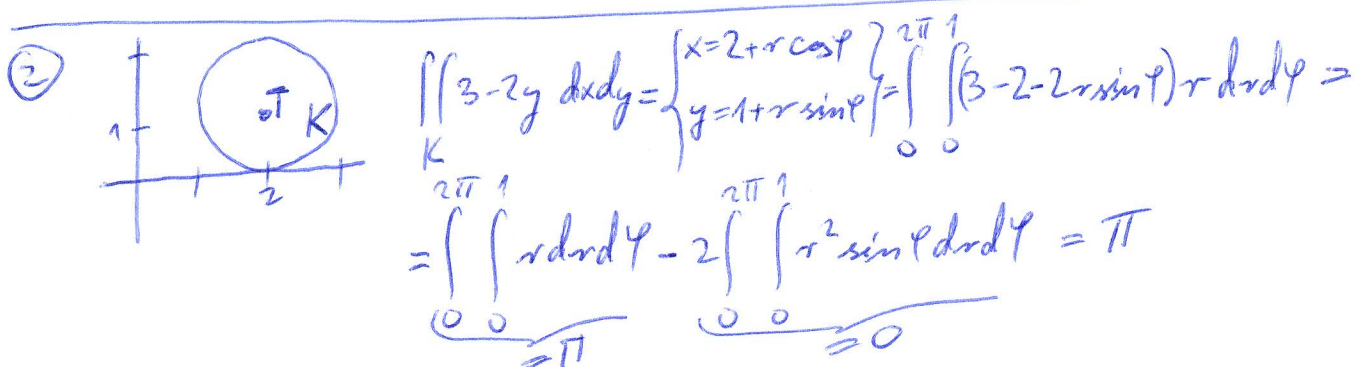 ② ∬_K 3-2y dxdy = { x=2+r cosφ, y=1+r sinφ } = ∫_0^{2π} ∫_0^1 (3-2-2r sinφ) r drdφ =
1 .T K
2
= ∫_0^{2π} ∫_0^1 r dr dφ - 2 ∫_0^{2π} ∫_0^1 r² sinφ dr dφ = π
=π =0